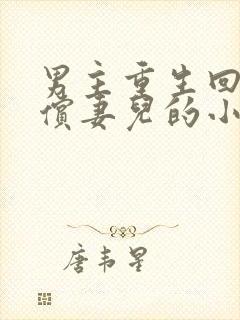 男主重生回
償妻兒的小
唐韦星